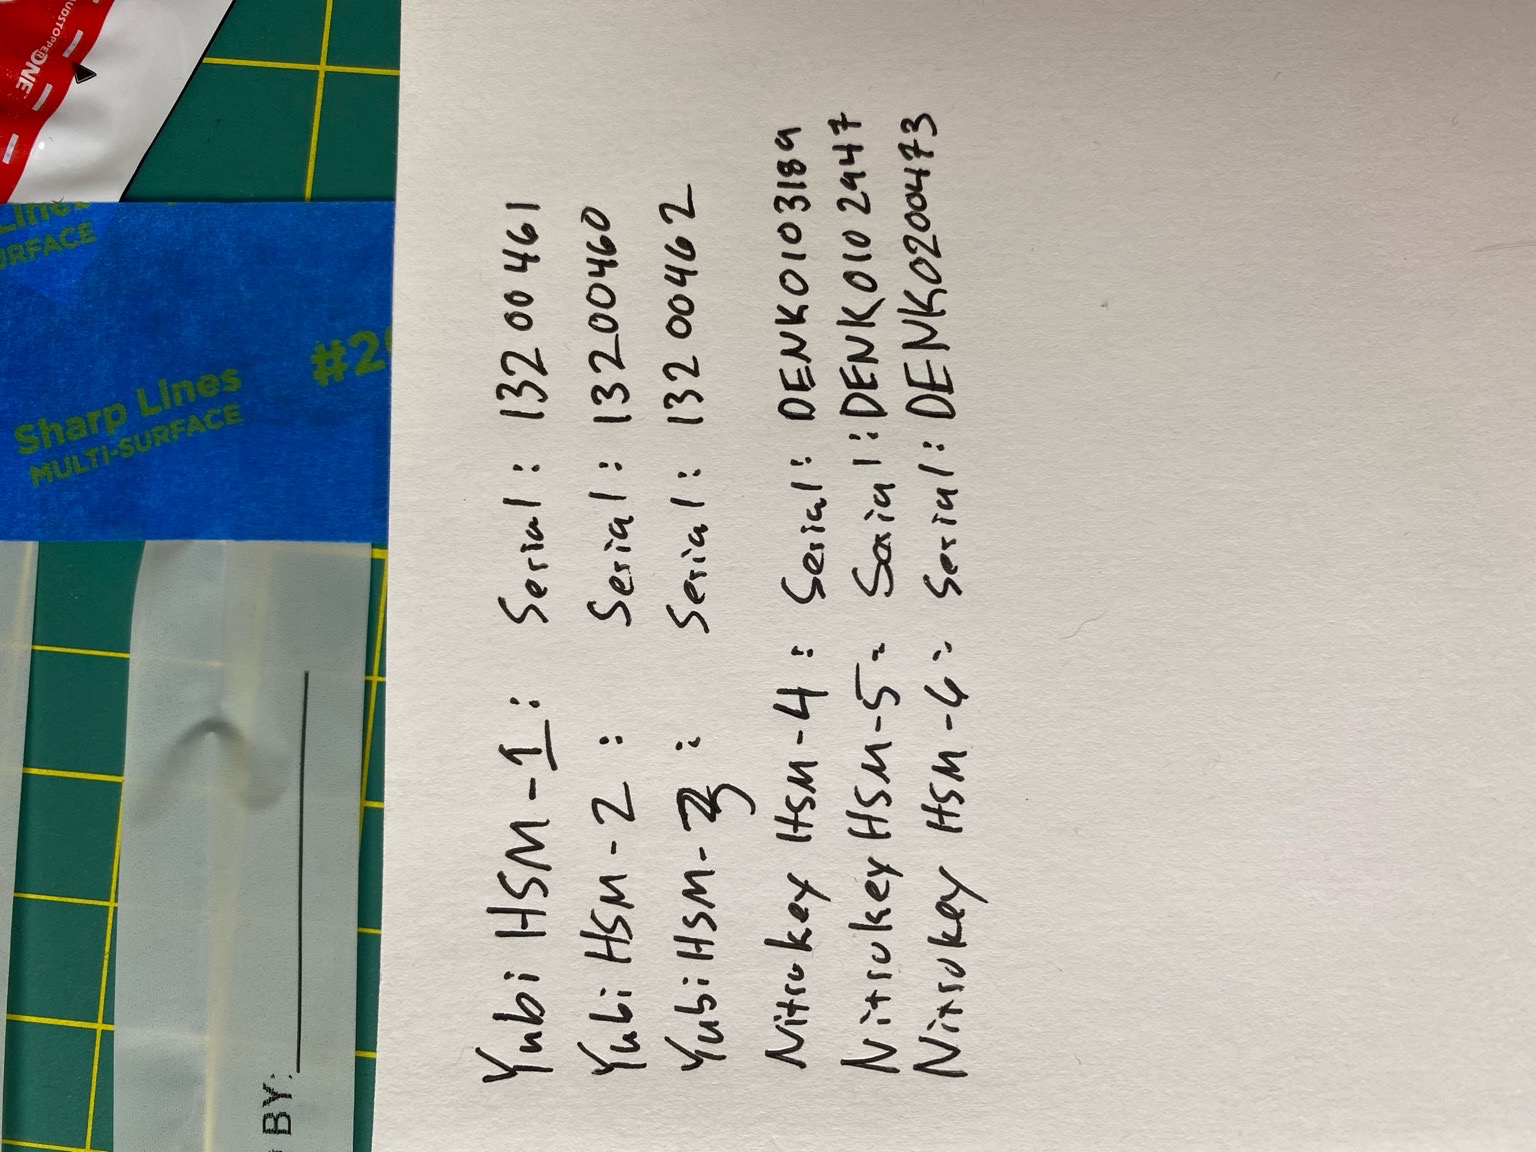 Sharp Lines
MULTI-SURFACE
#2
BY:
Yubi HSM-1: Serial: 13200461
Yubi HSM-2: Serial: 13200460
Yubi HSM-3: Serial: 13200462
Nitrokey HSM-4: Serial: DENK0103189
Nitrokey HSM-5: Serial: DENK0102947
Nitrokey HSM-6: Serial: DENK0200473